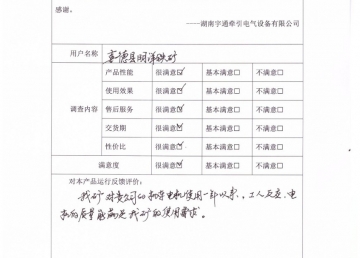 感谢。
——湖南宇通牵引电气设备有限公司
用户名称 宽城县明洋铁矿
调查内容
产品性能 很满意☑ 基本满意□ 不满意□
使用效果 很满意☑ 基本满意□ 不满意□
售后服务 很满意☑ 基本满意□ 不满意□
交货期 很满意☑ 基本满意□ 不满意□
性价比 很满意☑ 基本满意□ 不满意□
满意度 很满意☑ 基本满意□ 不满意□
对本产品运行反馈评价:
我矿对贵公司的 电机使用一年以来,工人反应,电
机的质量能满足我矿的使用需求。